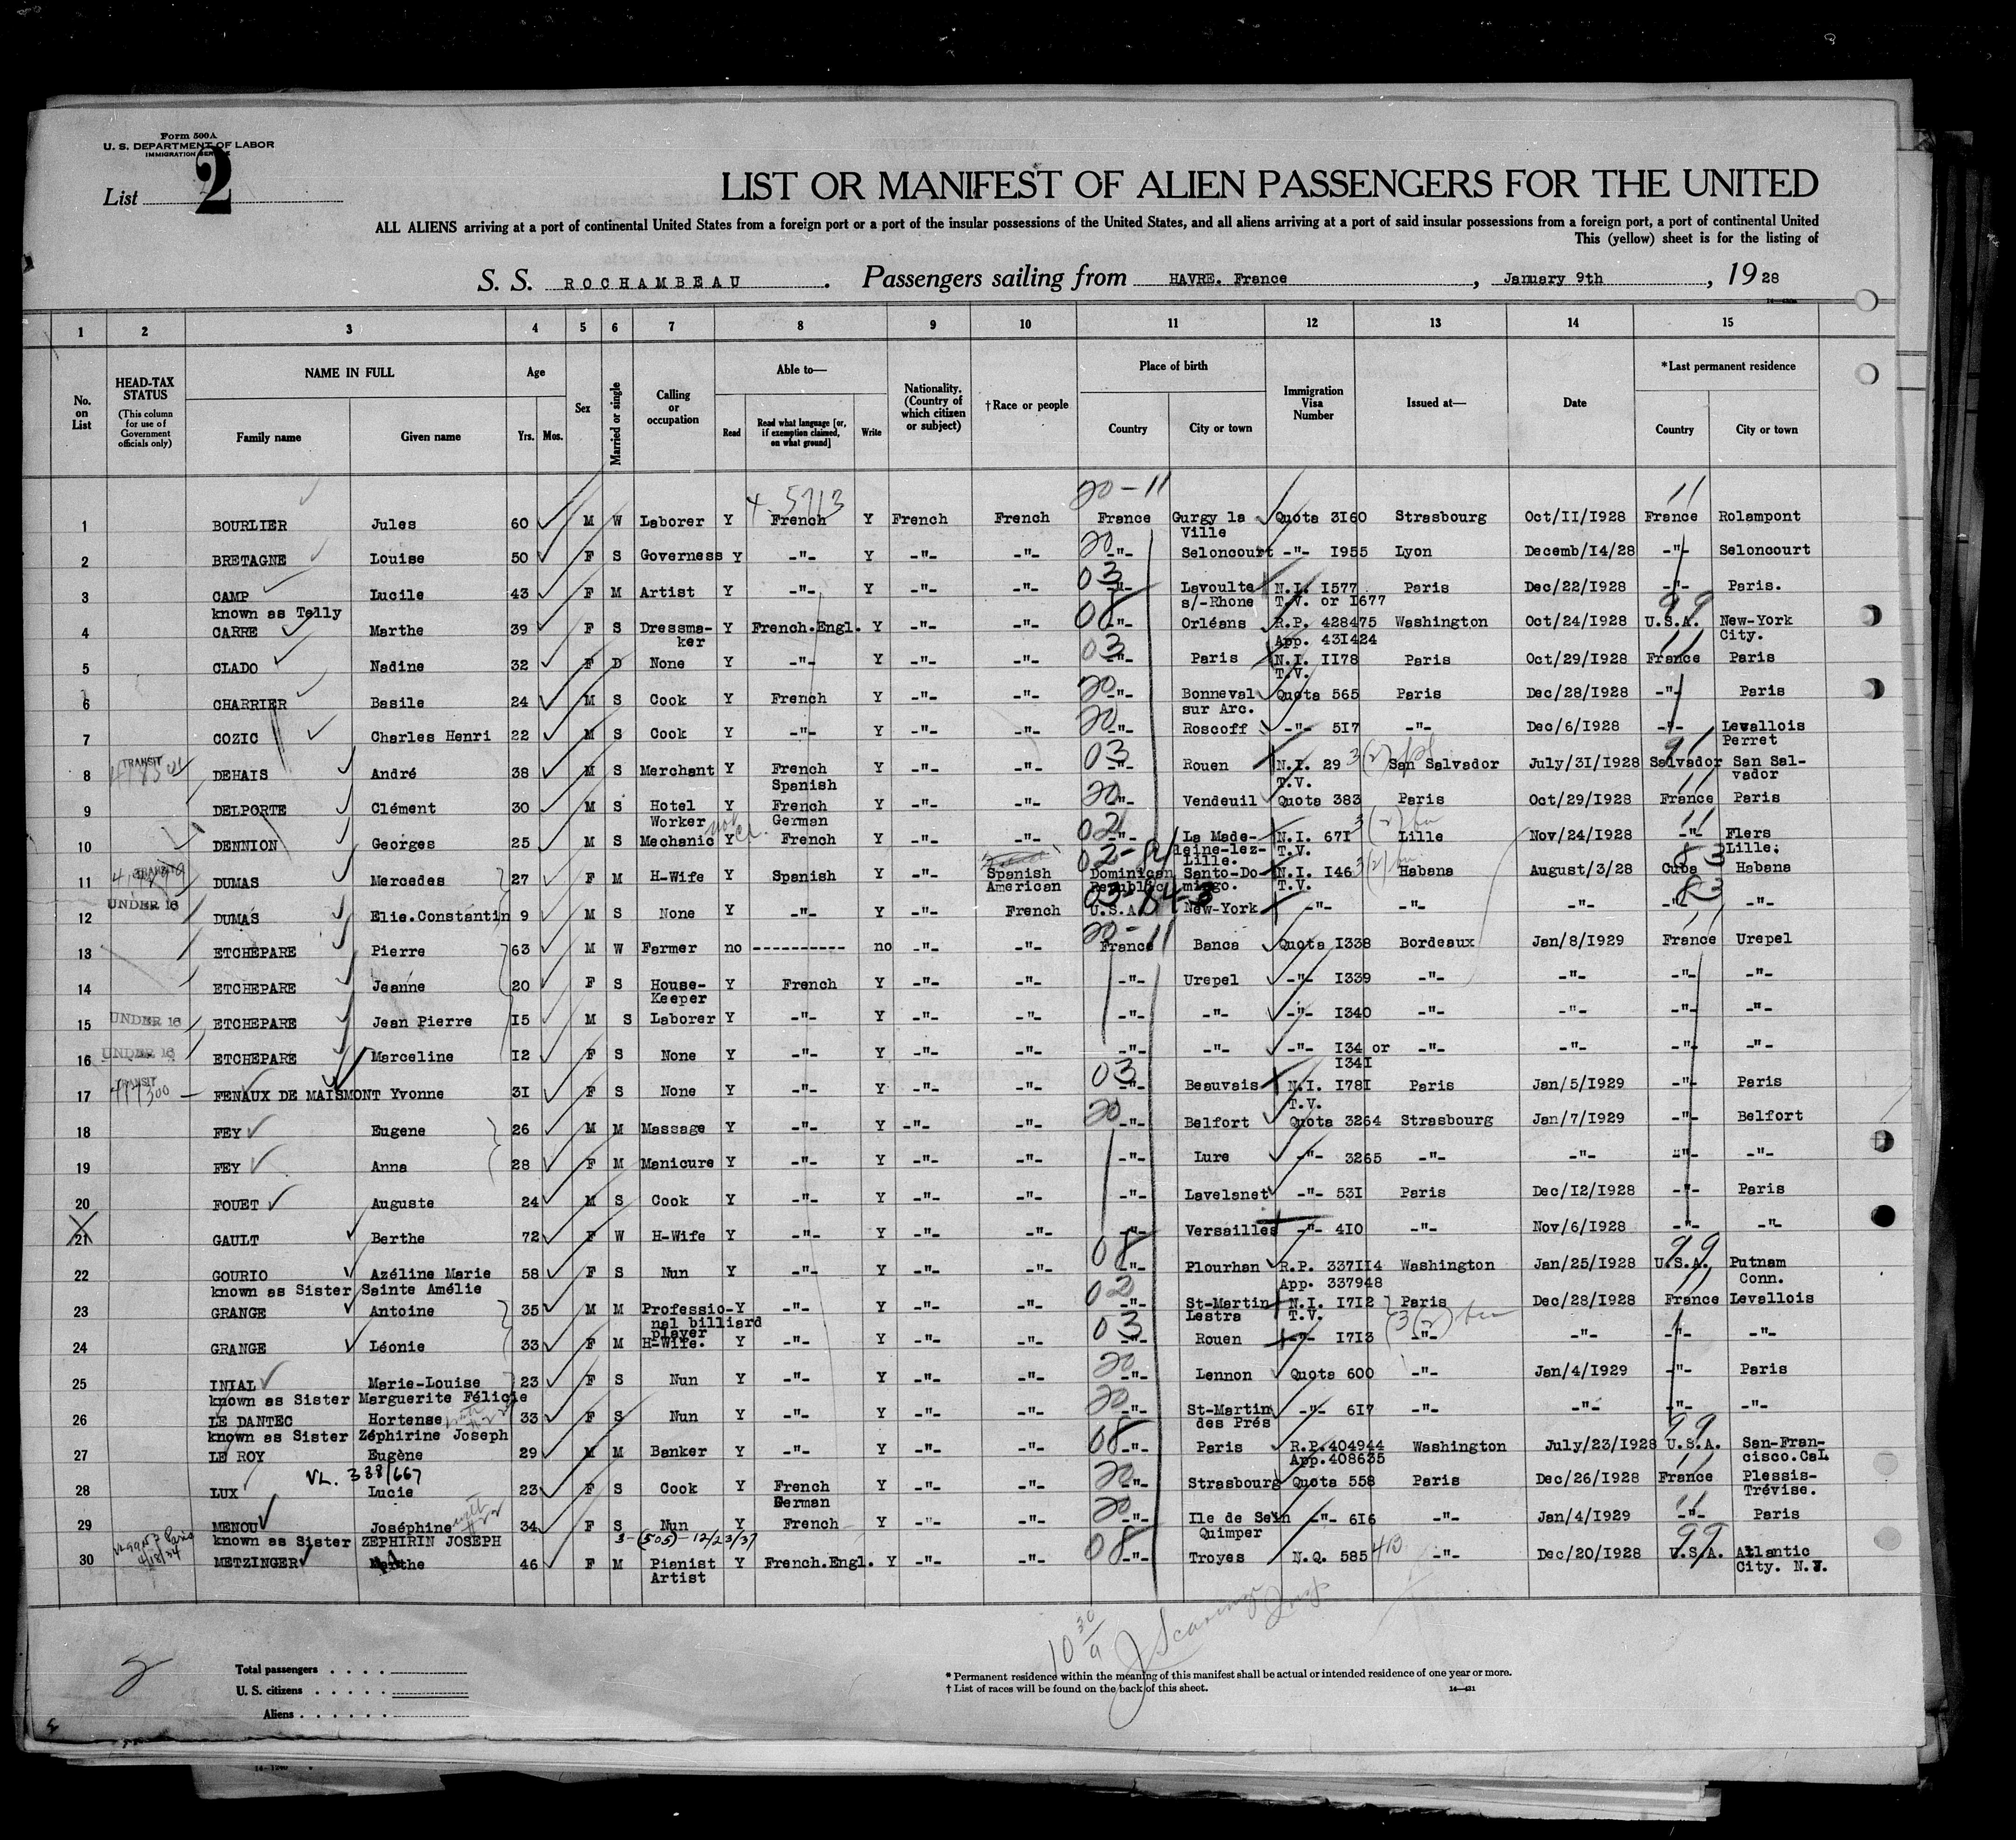 Form 500A
U. S. DEPARTMENT OF LABOR
IMMIGRATION SERVICE
List 2
LIST OR MANIFEST OF ALIEN PASSENGERS FOR THE UNITED
ALL ALIENS arriving at a port of continental United States from a foreign port or a port of the insular possessions of the United States, and all aliens arriving at a port of said insular possessions from a foreign port, a port of continental United
This (yellow) sheet is for the listing of
S. S. ROCHAMBEAU . Passengers sailing from HAVRE. France , January 9th , 19 28
1 2 3 4 5 6 7 8 9 10 11 12 13 14 15
No. on List
HEAD-TAX STATUS (This column for use of Government officials only)
NAME IN FULL Family name Given name
Age Yrs. Mos.
Sex
Married or single
Calling or occupation
Able to— Read Read what language [or, if exemption claimed, on what ground] Write
Nationality. (Country of which citizen or subject)
†Race or people
Place of birth Country City or town
Immigration Visa Number
Issued at—
Date
*Last permanent residence Country City or town
4-5713 20-11 11
1 BOURLIER Jules 60 M W Laborer Y French Y French French France Gurgy la Quota 3160 Strasbourg Oct/11/1928 France Rolampont
Ville
20
2 BRETAGNE Louise 50 F S Governess Y -"- Y -"- -"- -"- Seloncourt -"- 1955 Lyon Decemb/14/28 -"- Seloncourt
03
3 CAMP Lucile 43 F M Artist Y -"- Y -"- -"- -"- Lavoulte N.I. 1577 Paris Dec/22/1928 -"- Paris.
known as Telly s/-Rhone T.V. or 1677
08 99
4 CARRE Marthe 39 F S Dressma- Y French.Engl. Y -"- -"- -"- Orléans R.P. 428475 Washington Oct/24/1928 U.S.A. New-York
ker App. 431424 City.
03 11
5 CLADO Nadine 32 F D None Y -"- Y -"- -"- -"- Paris N.I. 1178 Paris Oct/29/1928 France Paris
T.V.
20
6 CHARRIER Basile 24 M S Cook Y French Y -"- -"- -"- Bonneval Quota 565 Paris Dec/28/1928 -"- Paris
sur Arc.
20
7 COZIC Charles Henri 22 M S Cook Y -"- Y -"- -"- -"- Roscoff -"- 517 -"- Dec/6/1928 -"- Levallois
Perret
TRANSIT 03
8 DEHAIS André 38 M S Merchant Y French Y -"- -"- -"- Rouen N.I. 29 3(2) San Salvador July/31/1928 Salvador San Sal-
Spanish T.V. vador
20 11
9 DELPORTE Clément 30 M S Hotel Y French Y -"- -"- -"- Vendeuil Quota 383 Paris Oct/29/1928 France Paris
Worker German
02 11
10 DENNION Georges 25 M S Mechanic Y French Y -"- -"- -"- La Made- N.I. 671 3(2) Lille Nov/24/1928 -"- Flers
leine-lez- T.V. Lille.
Lille.
TRANSIT 83
11 DUMAS Mercedes 27 F M H-Wife Y Spanish Y -"- Spanish Dominican Santo-Do- N.I. 146 3(2) Habana August/3/28 Cuba Habana
American Republic mingo. T.V.
UNDER 16 03-84-3 83
12 DUMAS Elie.Constantin 9 M S None Y -"- Y -"- French U.S.A. New-York -"- -"- -"- -"- -"-
20-11 11
13 ETCHEPARE Pierre 63 M W Farmer no ---------- no -"- -"- France Banca Quota 1338 Bordeaux Jan/8/1929 France Urepel
14 ETCHEPARE Jeanne 20 F S House- Y French Y -"- -"- -"- Urepel -"- 1339 -"- -"- -"- -"-
Keeper
15 UNDER 16 ETCHEPARE Jean Pierre 15 M S Laborer Y -"- Y -"- -"- -"- -"- -"- 1340 -"- -"- -"- -"-
16 UNDER 16 ETCHEPARE Marceline 12 F S None Y -"- Y -"- -"- -"- -"- -"- 134 or -"- -"- -"- -"-
1341
TRANSIT 03
17 FENAUX DE MAISMONT Yvonne 31 F S None Y -"- Y -"- -"- -"- Beauvais N.I. 1781 Paris Jan/5/1929 -"- Paris
T.V.
20
18 FEY Eugene 26 M M Massage Y -"- Y -"- -"- -"- Belfort Quota 3264 Strasbourg Jan/7/1929 -"- Belfort
19 FEY Anna 28 F M Manicure Y -"- Y -"- -"- -"- Lure -"- 3265 -"- -"- -"- -"-
20 FOUET Auguste 24 M S Cook Y -"- Y -"- -"- -"- Lavelanet -"- 531 Paris Dec/12/1928 -"- Paris
21 GAULT Berthe 72 F W H-Wife Y -"- Y -"- -"- -"- Versailles -"- 410 -"- Nov/6/1928 -"- -"-
08 99
22 GOURIO Azéline Marie 58 F S Nun Y -"- Y -"- -"- -"- Plourhan R.P. 337114 Washington Jan/25/1928 U.S.A. Putnam
known as Sister Sainte Amélie App. 337948 Conn.
02 11
23 GRANGE Antoine 35 M M Professio- Y -"- Y -"- -"- -"- St-Martin N.I. 1712 Paris Dec/28/1928 France Levallois
nal billiard Lestra T.V. 3(2)
player
03
24 GRANGE Léonie 33 F M H-Wife. Y -"- Y -"- -"- -"- Rouen -"- 1713 -"- -"- -"- -"-
20
25 INIAL Marie-Louise 23 F S Nun Y -"- Y -"- -"- -"- Lennon Quota 600 -"- Jan/4/1929 -"- Paris
known as Sister Marguerite Félicie
20
26 LE DANTEC Hortense 33 F S Nun Y -"- Y -"- -"- -"- St-Martin -"- 617 -"- -"- -"- -"-
known as Sister Zéphirine Joseph des Prés
08 99
27 LE ROY Eugène 29 M M Banker Y -"- Y -"- -"- -"- Paris R.P.404944 Washington July/23/1928 U.S.A. San-Fran-
App.408635 cisco.Cal
VL. 338/667 20 11
28 LUX Lucie 23 F S Cook Y French Y -"- -"- -"- Strasbourg Quota 558 Paris Dec/26/1928 France Plessis-
German Trévise.
20 11
29 MENOU Joséphine 34 F S Nun Y French Y -"- -"- -"- Ile de Sein -"- 616 -"- Jan/4/1929 -"- Paris
known as Sister ZEPHIRIN JOSEPH 3-(505)-12/23/37 Quimper
4/18/34 08 99
30 METZINGER Marthe 46 F M Pianist Y French.Engl. Y -"- -"- -"- Troyes N.Q. 585 -"- Dec/20/1928 U.S.A. Atlantic
Artist City. N.J.
10 30/a
Total passengers . . . .
U. S. citizens . . . . .
Aliens . . . . . .
* Permanent residence within the meaning of this manifest shall be actual or intended residence of one year or more.
† List of races will be found on the back of this sheet.
14—431